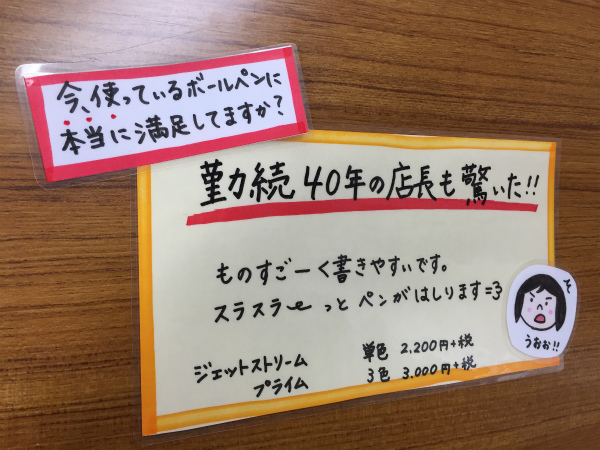 今、使っているボールペンに
本当に満足してますか?
勤続40年の店長も驚いた!!
ものすごーく書きやすいです。
スラスラ〜っとペンがはしります=3
ジェットストリーム 単色 2,200円+税
プライム 3色 3,000円+税
うおお!!